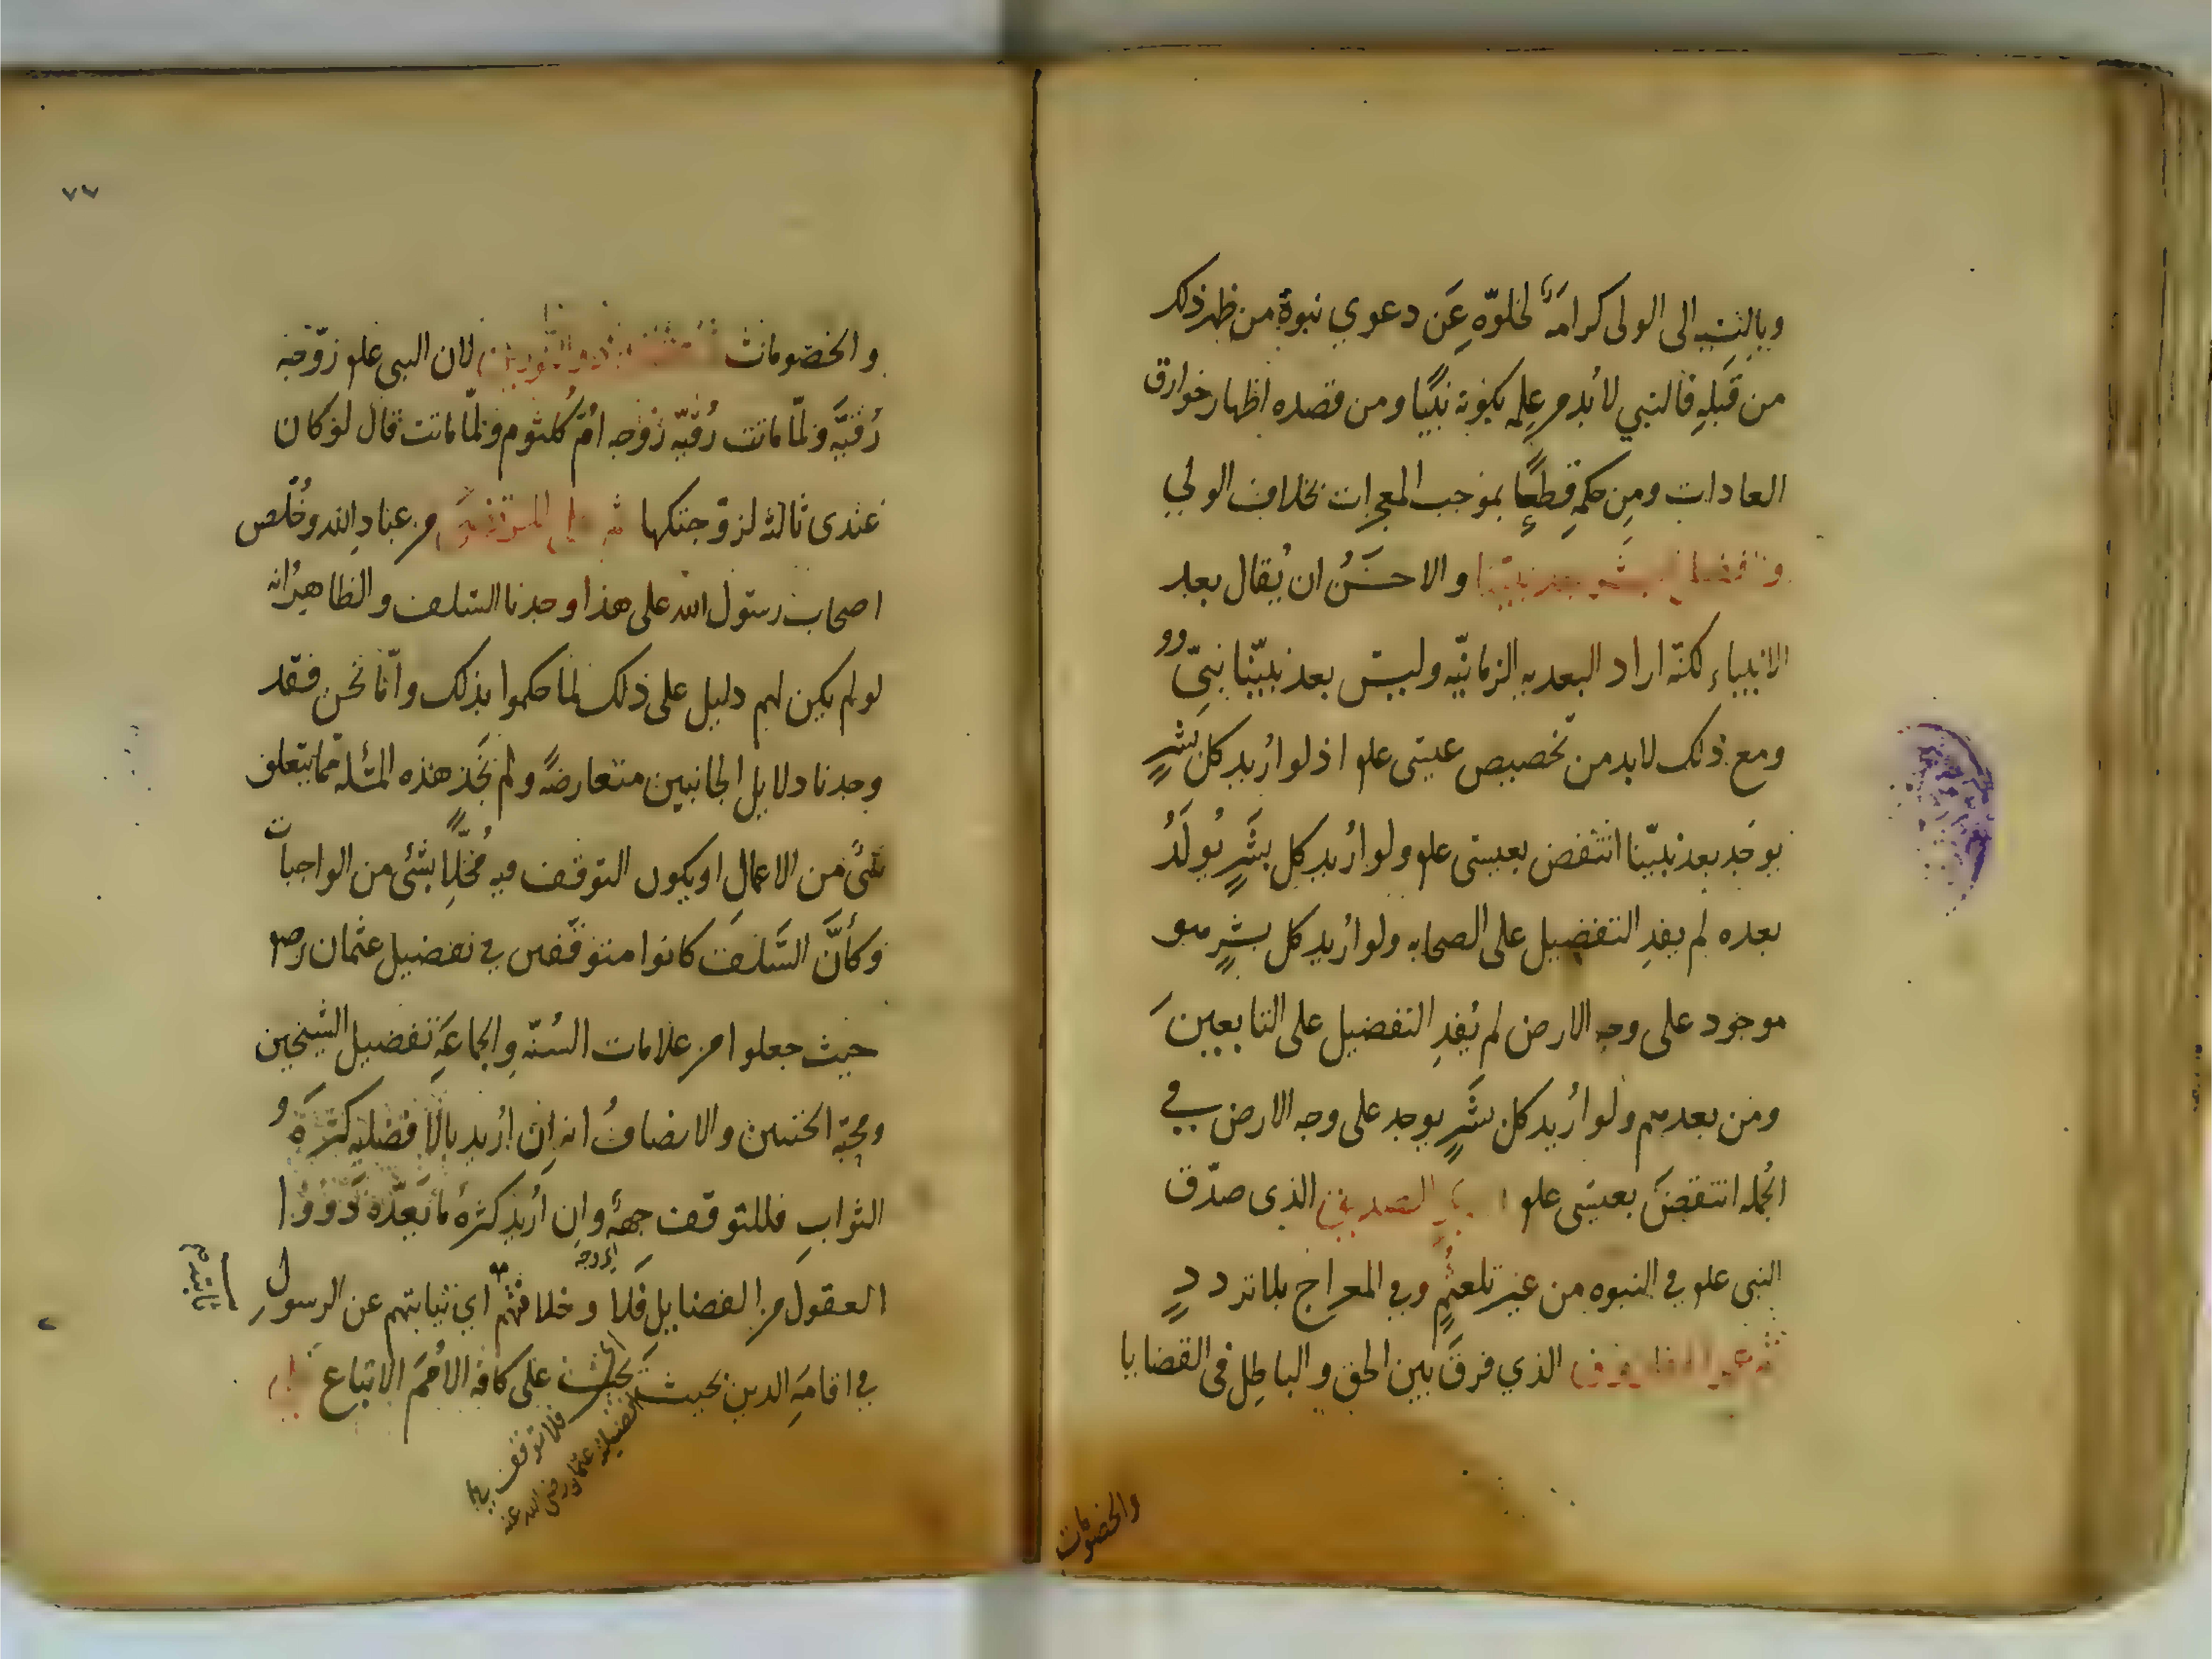 وبالنسبة الى الولى كرامة لخلوّه عَن دعوي نبوة من ظهر ذلك
من قِبَلِهِ فالنبي لا بُد من عِلمه بكونه نبيًا ومن قصده اظهار خوارق
العادات ومِن حكمِه قطعًا بموجب المعجزات بخلاف الولي
وافضل البشر بعد نبينا والاحسَنُ ان يُقال بعد
الانبياء لكنّه اراد البعديه الزمانيّه وليس بعد نبيّنا نبىّ
ومع ذلك لابد من تخصيص عيسى علم اذ لو اُريد كل بشرٍ
يوجَد بعد نبيّنا انتقض بعيسى علم ولو اُريد كل بشَرٍ يُولَدُ
بعده لم يفدِ التفضيل على الصحابه ولو اُريد كل بشرٍ هو
موجود على وجه الارض لم يُفدِ التفضيل على التابعينَ
ومن بعدهم ولو اُريد كل بشَرٍ يوجد على وجه الارض في
الجُمله انتقضَ بعيسى علم ابو بكر الصديق الذى صدّق
النبى علم في النبوه من غير تلعثُمٍ وفي المعراج بلا تردد
ثم عمر الفاروق الذي فرقَ بين الحق والباطل فى القضايا
والخصومات
٧٧
والخصومات ثم عثمان ذو النورين لان النبى علم زوّجه
رُقيَّه ولمّا ماتت رُقيّه زوّجه اُمّ كُلثوم ولمّا ماتت قال لو كان
عندى ثالثة لزوجتكها ثم على المرتضى من عباد الله وخُلّص
اصحاب رسول الله على هذا وجدنا السلف والظاهرُ انه
لو لم يكن لهم دليل على ذلك لما حكموا بذلك وامّا نحن فقد
وجدنا دلايل الجانبين متعارضةً ولم نَجد هذه المسئلة ممّا يتعلق
شىءٌ من الاعمالِ او يكون التوقف فيه مُخِلًّا بشئ من الواجبات
وكأنَّ السَّلفَ كانوا متوقّفين في تفضيل عثمان رضه
حيث جعلوا من علامات السُنّه والجماعَةِ تفضيل الشيخين
ومحبّة الختنين والانصافُ انه اِن اُريد بالافضليه كثرةُ
الثوابِ فللتوقف جهةٌ وان اُريد كثرة ما يَعدّه ذوُوا
العقول من الفضايل فَلا وخلافتُهم اي نيابتهم عن الرسولِ
اى وجه
في اقامَةِ الدين بحيث يجب على كافة الاُممَ الاتباع
فلا توقف في
افضيلة عثمان رضى الله عنه